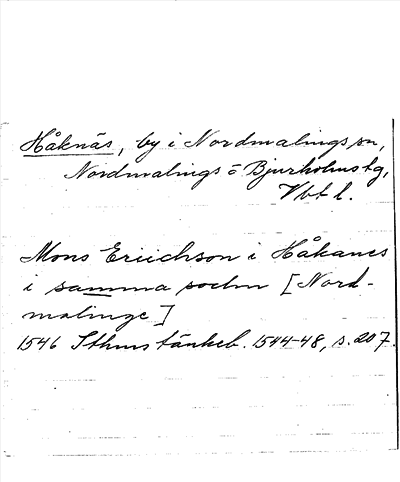 Håknäs, by i Nordmalings sn,
Nordmalings o Bjurholms tg,
Vbt l.
Mons Eriichson i Håkanes
i samma sochn [Nord-
malinge]
1546 Sthms tänkeb. 1544-48, s. 207.